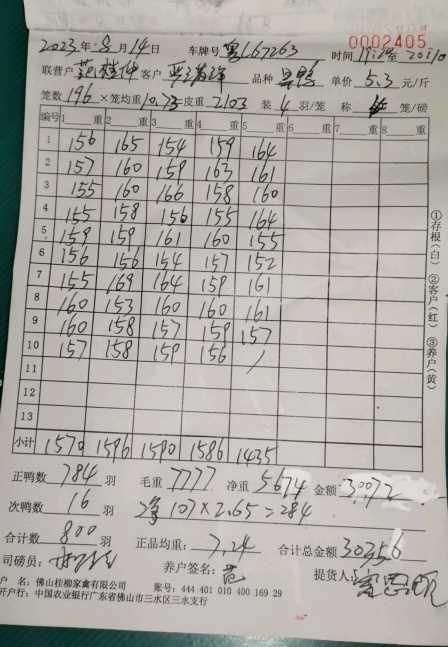 0002405
2023年8月14日 车牌号 粤L67263 时间 19:20至20:10
联营户 范桂坤 客户 品种 单价 5.3 元/斤
笼数 196 ×笼均重 10.73 皮重 2103 装 4 羽/笼 称 笼/磅
编号 1 重 2 重 3 重 4 重 5 重 6 重 7 重 8 重
1 156 165 154 159 164
2 157 160 159 163 161
3 155 160 166 158 160
4 155 158 156 155 164
5 159 159 161 160 155
6 156 156 154 157 152
7 155 169 164 159 161
8 160 153 160 160 161
9 160 158 157 159 157
10 157 158 159 156 /
11
12
13
小计 1570 1596 1590 1586 1435
正鸭数 784 羽 毛重 7777 净重 5674 金额 30072
次鸭数 16 羽 107×2.65=284
合计数 800 羽 正品均重: 7.24 合计总金额 30356
司磅员: 养户签名: 范 提货人:
户 名: 佛山桂柳家禽有限公司 账号: 444 401 010 400 169 29
开户行: 中国农业银行广东省佛山市三水区三水支行
①存根(白) ②客户(红) ③养户(黄)